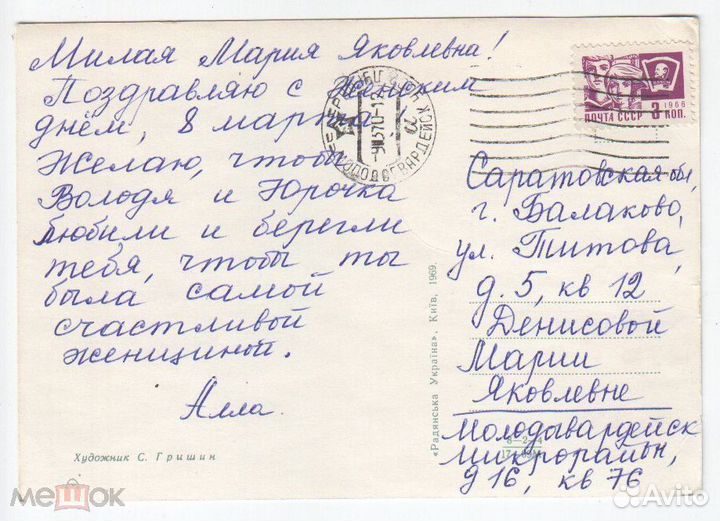 Милая Мария Яковлевна!
Поздравляю с Женским
днём, 8 марта!
Желаю, чтобы
Володя и Юрочка
любили и берегли
тебя, чтобы ты
была самой
счастливой
женщиной.
Алла.
Художник С. Гришин
«Радянська Україна», Київ, 1969.
1966
ПОЧТА СССР 3 КОП.
Саратовская обл,
г. Балаково,
ул. Титова,
д. 5, кв 12
Денисовой
Марии
Яковлевне
Молодгвардейск
микрорайон,
д 16, кв 76
мешок
Avito